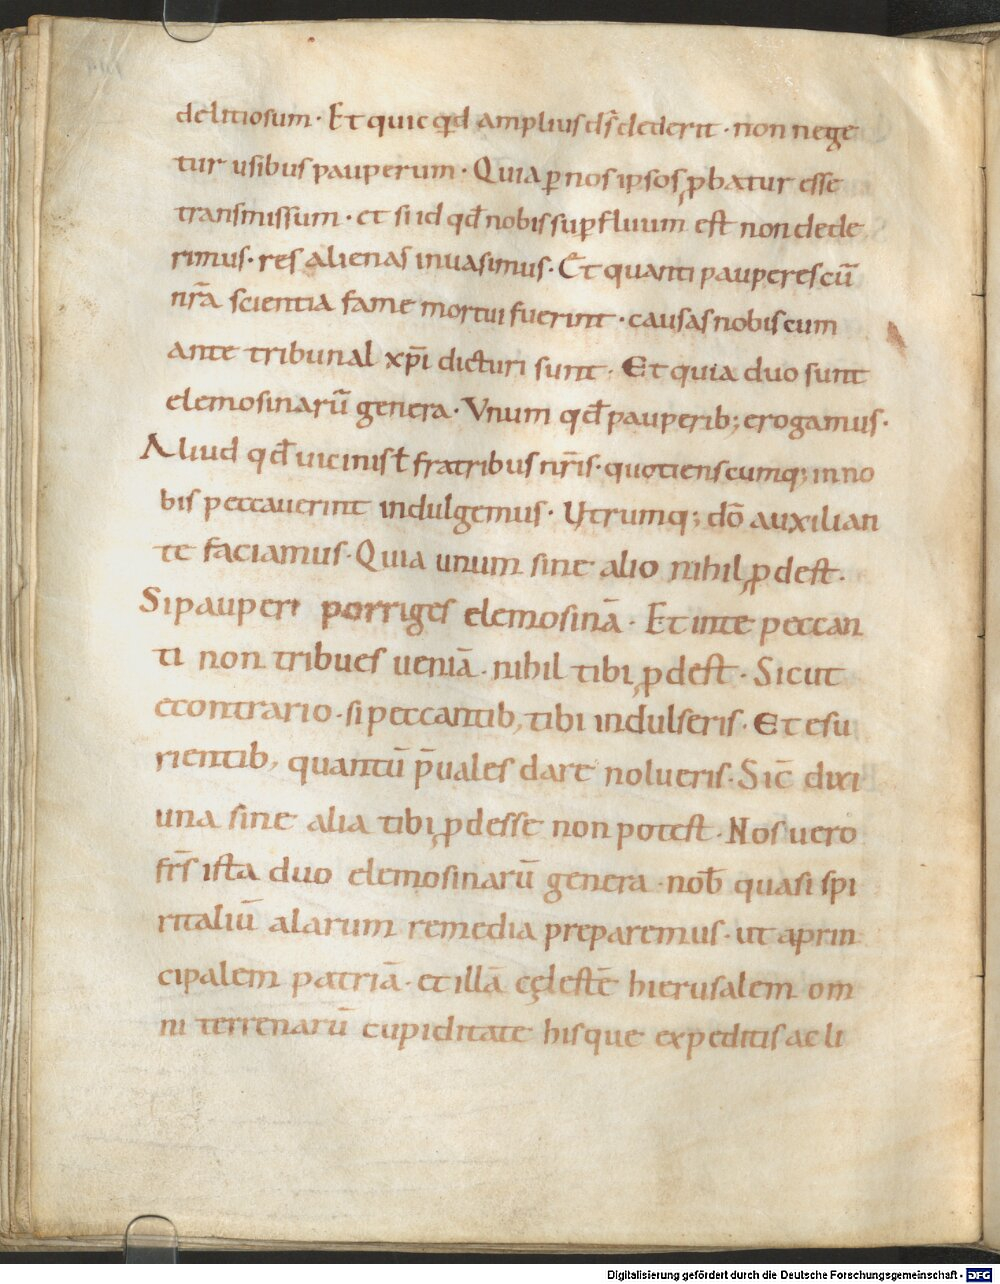 delitiosum · Et quic qd amplius ds̄ dederit · non nege
tur usibus pauperum · Quia ꝑ nos ipsos ꝓbatur esse
transmissum · et si id qd̄ nobis suꝑfluum est non dede
rimus · res alienas inuasimus · Et quanti pauperes cū
nr̄a scientia fame mortui fuerint · causas nobiscum
ante tribunal xp̄i dicturi sunt · Et quia duo sunt
elemosinarū genera · Vnum qd̄ pauperib; erogamus ·
Aliud qd̄ uicinis ł fratribus nr̄is · quotienscumq; in no
bis peccauerint indulgemus · Utrumq; dō auxilian
te faciamus · Quia unum sine alio nihil ꝓdest ·
Si pauperi porriges elemosinā · Et in te peccan
ti non tribues ueniā · nihil tibi ꝓdest · Sicut
econtrario · si peccantib, tibi indulseris · Et esu
rientib, quantū p̄uales dare nolueris · Sic̄ dixi
una sine alia tibi ꝓdesse non potest · Nos uero
fr̄s ista duo elemosinarū genera · nob̄ quasi spi
ritaliū alarum remedia preparemus · ut a prin
cipalem patriā · et illā cęlestē hierusalem om
ni terrenarū cupiditate hisque expeditis ac li
Digitalisierung gefördert durch die Deutsche Forschungsgemeinschaft - DFG